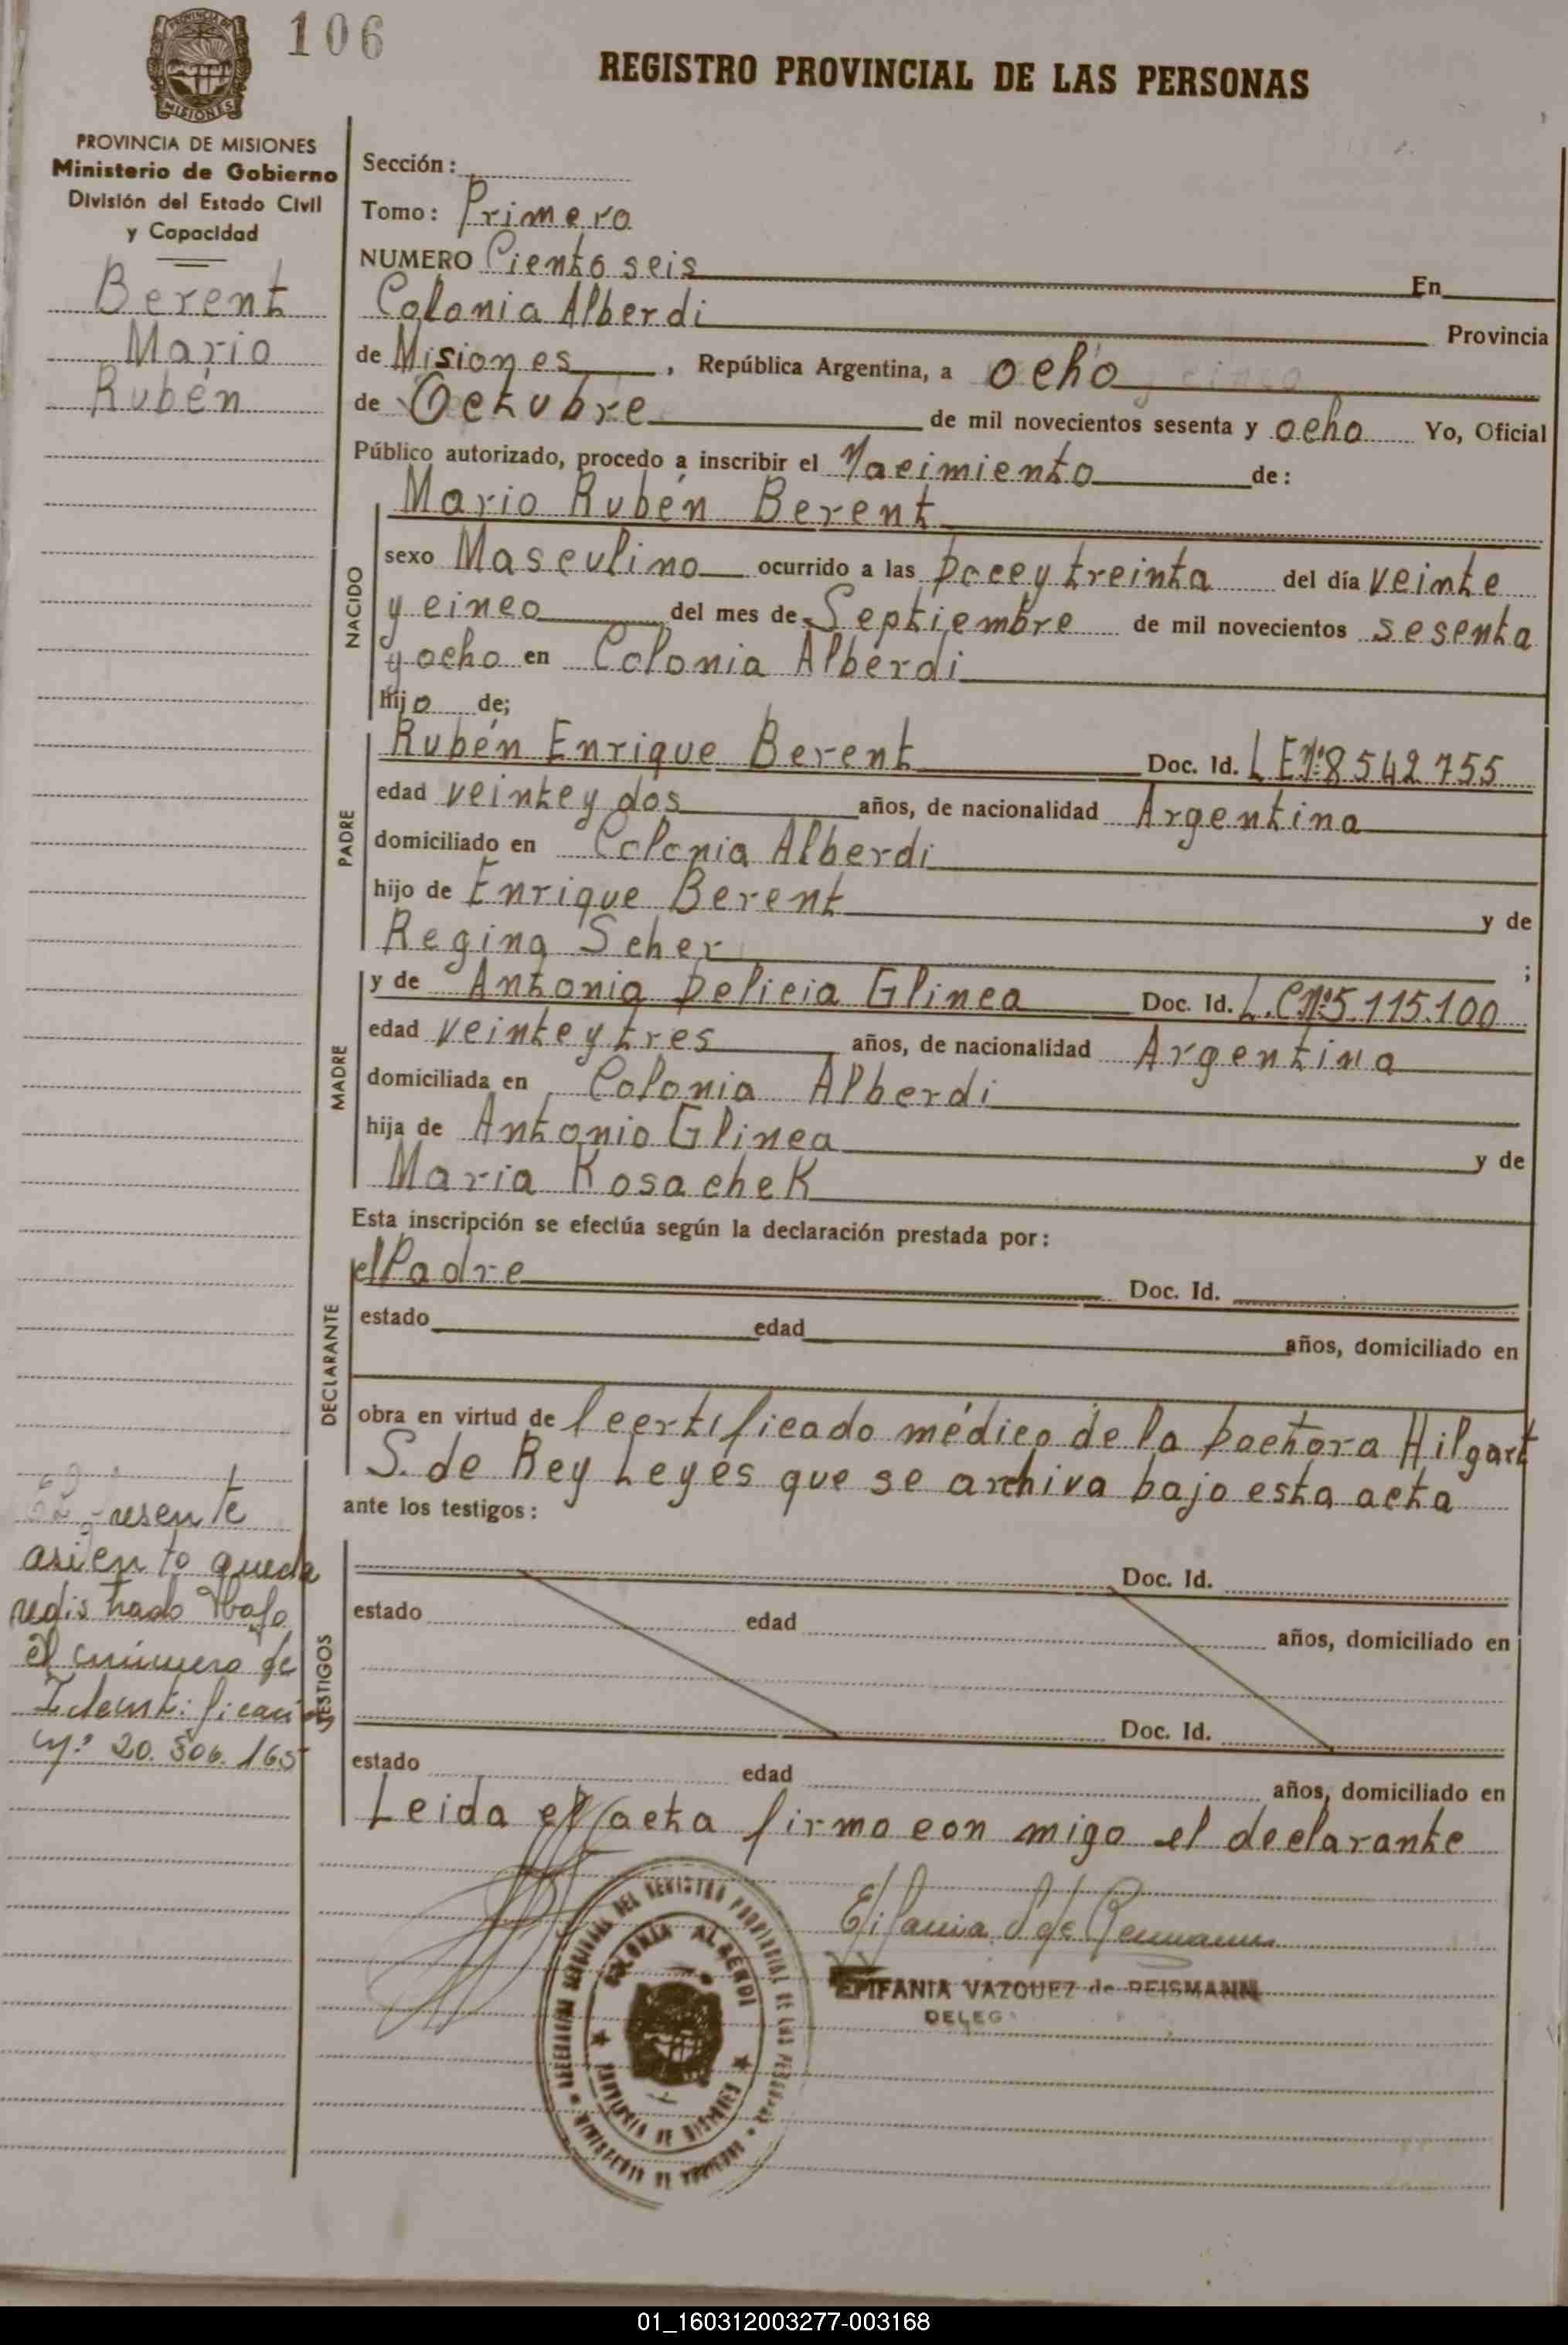 106
REGISTRO PROVINCIAL DE LAS PERSONAS
PROVINCIA DE MISIONES
Ministerio de Gobierno
División del Estado Civil
y Capacidad
Berent
Mario
Rubén
Sección:
Tomo: Primero
NUMERO Ciento seis En
Colonia Alberdi Provincia
de Misiones, República Argentina, a ocho
de Octubre de mil novecientos sesenta y ocho Yo, Oficial
Público autorizado, procedo a inscribir el Nacimiento de:
Mario Rubén Berent
NACIDO
sexo Masculino ocurrido a las Doce y treinta del día veinte
y cinco del mes de Septiembre de mil novecientos sesenta
y ocho en Colonia Alberdi
hijo de;
PADRE
Rubén Enrique Berent Doc. Id. L E Nº 8542755
edad veinte y dos años, de nacionalidad Argentina
domiciliado en Colonia Alberdi
hijo de Enrique Berent y de
Regina Scher ;
MADRE
y de Antonia Delicia Glinca Doc. Id. L.C Nº 5.115.100
edad veinte y tres años, de nacionalidad Argentina
domiciliada en Colonia Alberdi
hija de Antonio Glinca y de
Maria Kosachek
Esta inscripción se efectúa según la declaración prestada por:
DECLARANTE
el Padre Doc. Id.
estado edad años, domiciliado en
obra en virtud de l certificado médico de la Doctora Hilgart
S. de Rey Leyes que se archiva bajo esta acta
ante los testigos:
TESTIGOS
Doc. Id.
estado edad años, domiciliado en
Doc. Id.
estado edad años, domiciliado en
Leida el acta firmo con migo el declarante
resente
asiento queda
registrado bajo
el número de
Identificación
Nº 20.506.165
EPIFANIA VAZQUEZ de REISMANN
DELEG
DEL REGISTRO PROVINCIAL DE LAS PERSONAS
COLONIA ALBERDI
PROVINCIA DE MISIONES
MINISTERIO DE GOBIERNO
MISIONES
01_160312003277-003168